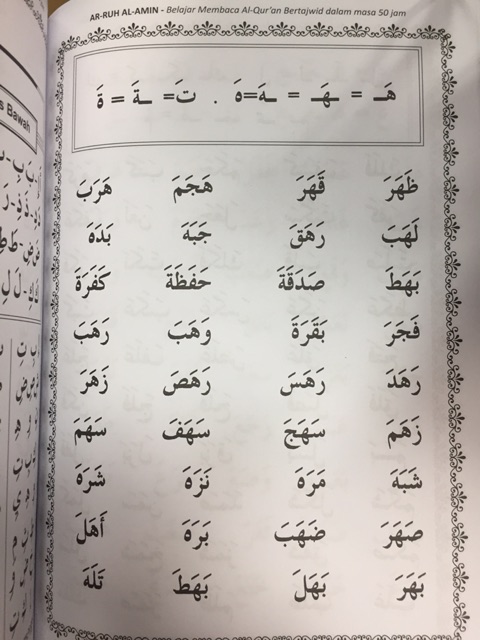 AR-RUH AL-AMIN - Belajar Membaca Al-Qur'an Bertajwid dalam masa 50 jam
هَـ = ـهَـ = ـهَ=هَ . تَ= ـةَ = ةَ
ظَهَرَ قَهَرَ هَجَمَ هَرَبَ
لَهَبَ رَهَقَ جَبَهَ بَدَهَ
بَهَطَ صَدَقَةَ حَفَظَةَ كَفَرَةَ
فَجَرَ بَقَرَةَ وَهَبَ رَهَبَ
رَهَدَ رَهَسَ رَهَصَ زَهَرَ
زَهَمَ سَهَجَ سَهَفَ سَهَمَ
شَبَهَ مَرَهَ نَزَهَ شَرَهَ
صَهَرَ ضَهَبَ بَرَهَ أَهَلَ
بَهَرَ بَهَلَ بَهَطَ تَلَهَ
s Bawah